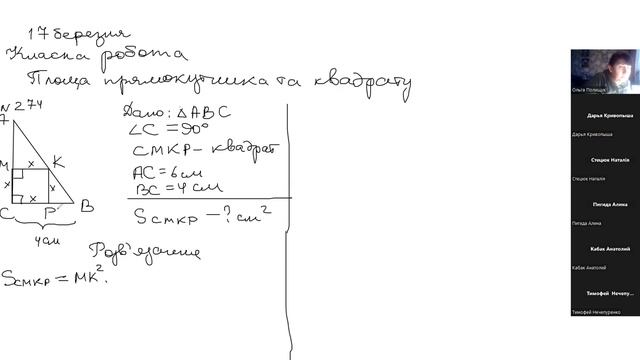 17 березня
Класна робота
Площа прямокутника та квадрату
N 274
A
M
x
K
x
x
x
C
P
B
4 см
Дано: △ABC
∠C = 90°
CMKP – квадрат
AC = 6 см
BC = 4 см
S CMKP – ? см²
Розв'язання
S CMKP = MK².
Ольга Полищук
Дарья Кривопыша
Дарья Кривопыша
Стецюк Наталія
Стецюк Наталія
Пигида Алина
Пигида Алина
Кабак Анатолий
Кабак Анатолий
Тимофей Нечепу...
Тимофей Нечепуренко